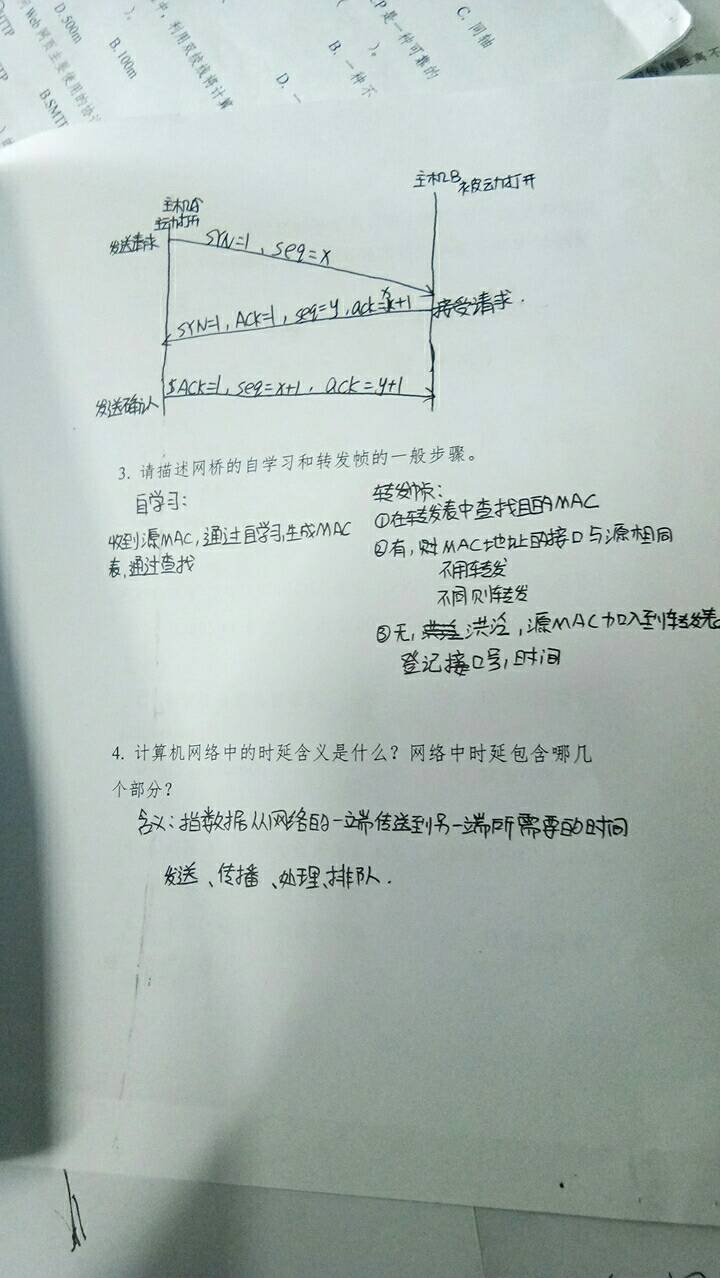 D. 500m
B. 100m
中，利用双绞线将计算
Web网页主要使用的协
B.SMTP
D. 一
B. 一种不
P 是一种可靠的
C. 同轴
主机A
主动打开
主机B 被动打开
发送请求
SYN=1, seq=x
SYN=1, ACK=1, seq=y, ack=x+1
接受请求.
ACK=1, seq=x+1, ack=y+1
发送确认
3. 请描述网桥的自学习和转发帧的一般步骤。
自学习:
收到源MAC,通过自学习生成MAC
表,通过查找
转发帧:
①在转发表中查找目的MAC
②有,则MAC地址的接口与源相同
不用转发
不同则转发
③无, 洪泛,源MAC加入到转发表
登记接口号,时间
4. 计算机网络中的时延含义是什么？网络中时延包含哪几
个部分？
含义:指数据从网络的一端传送到另一端所需要的时间
发送、传播、处理、排队.